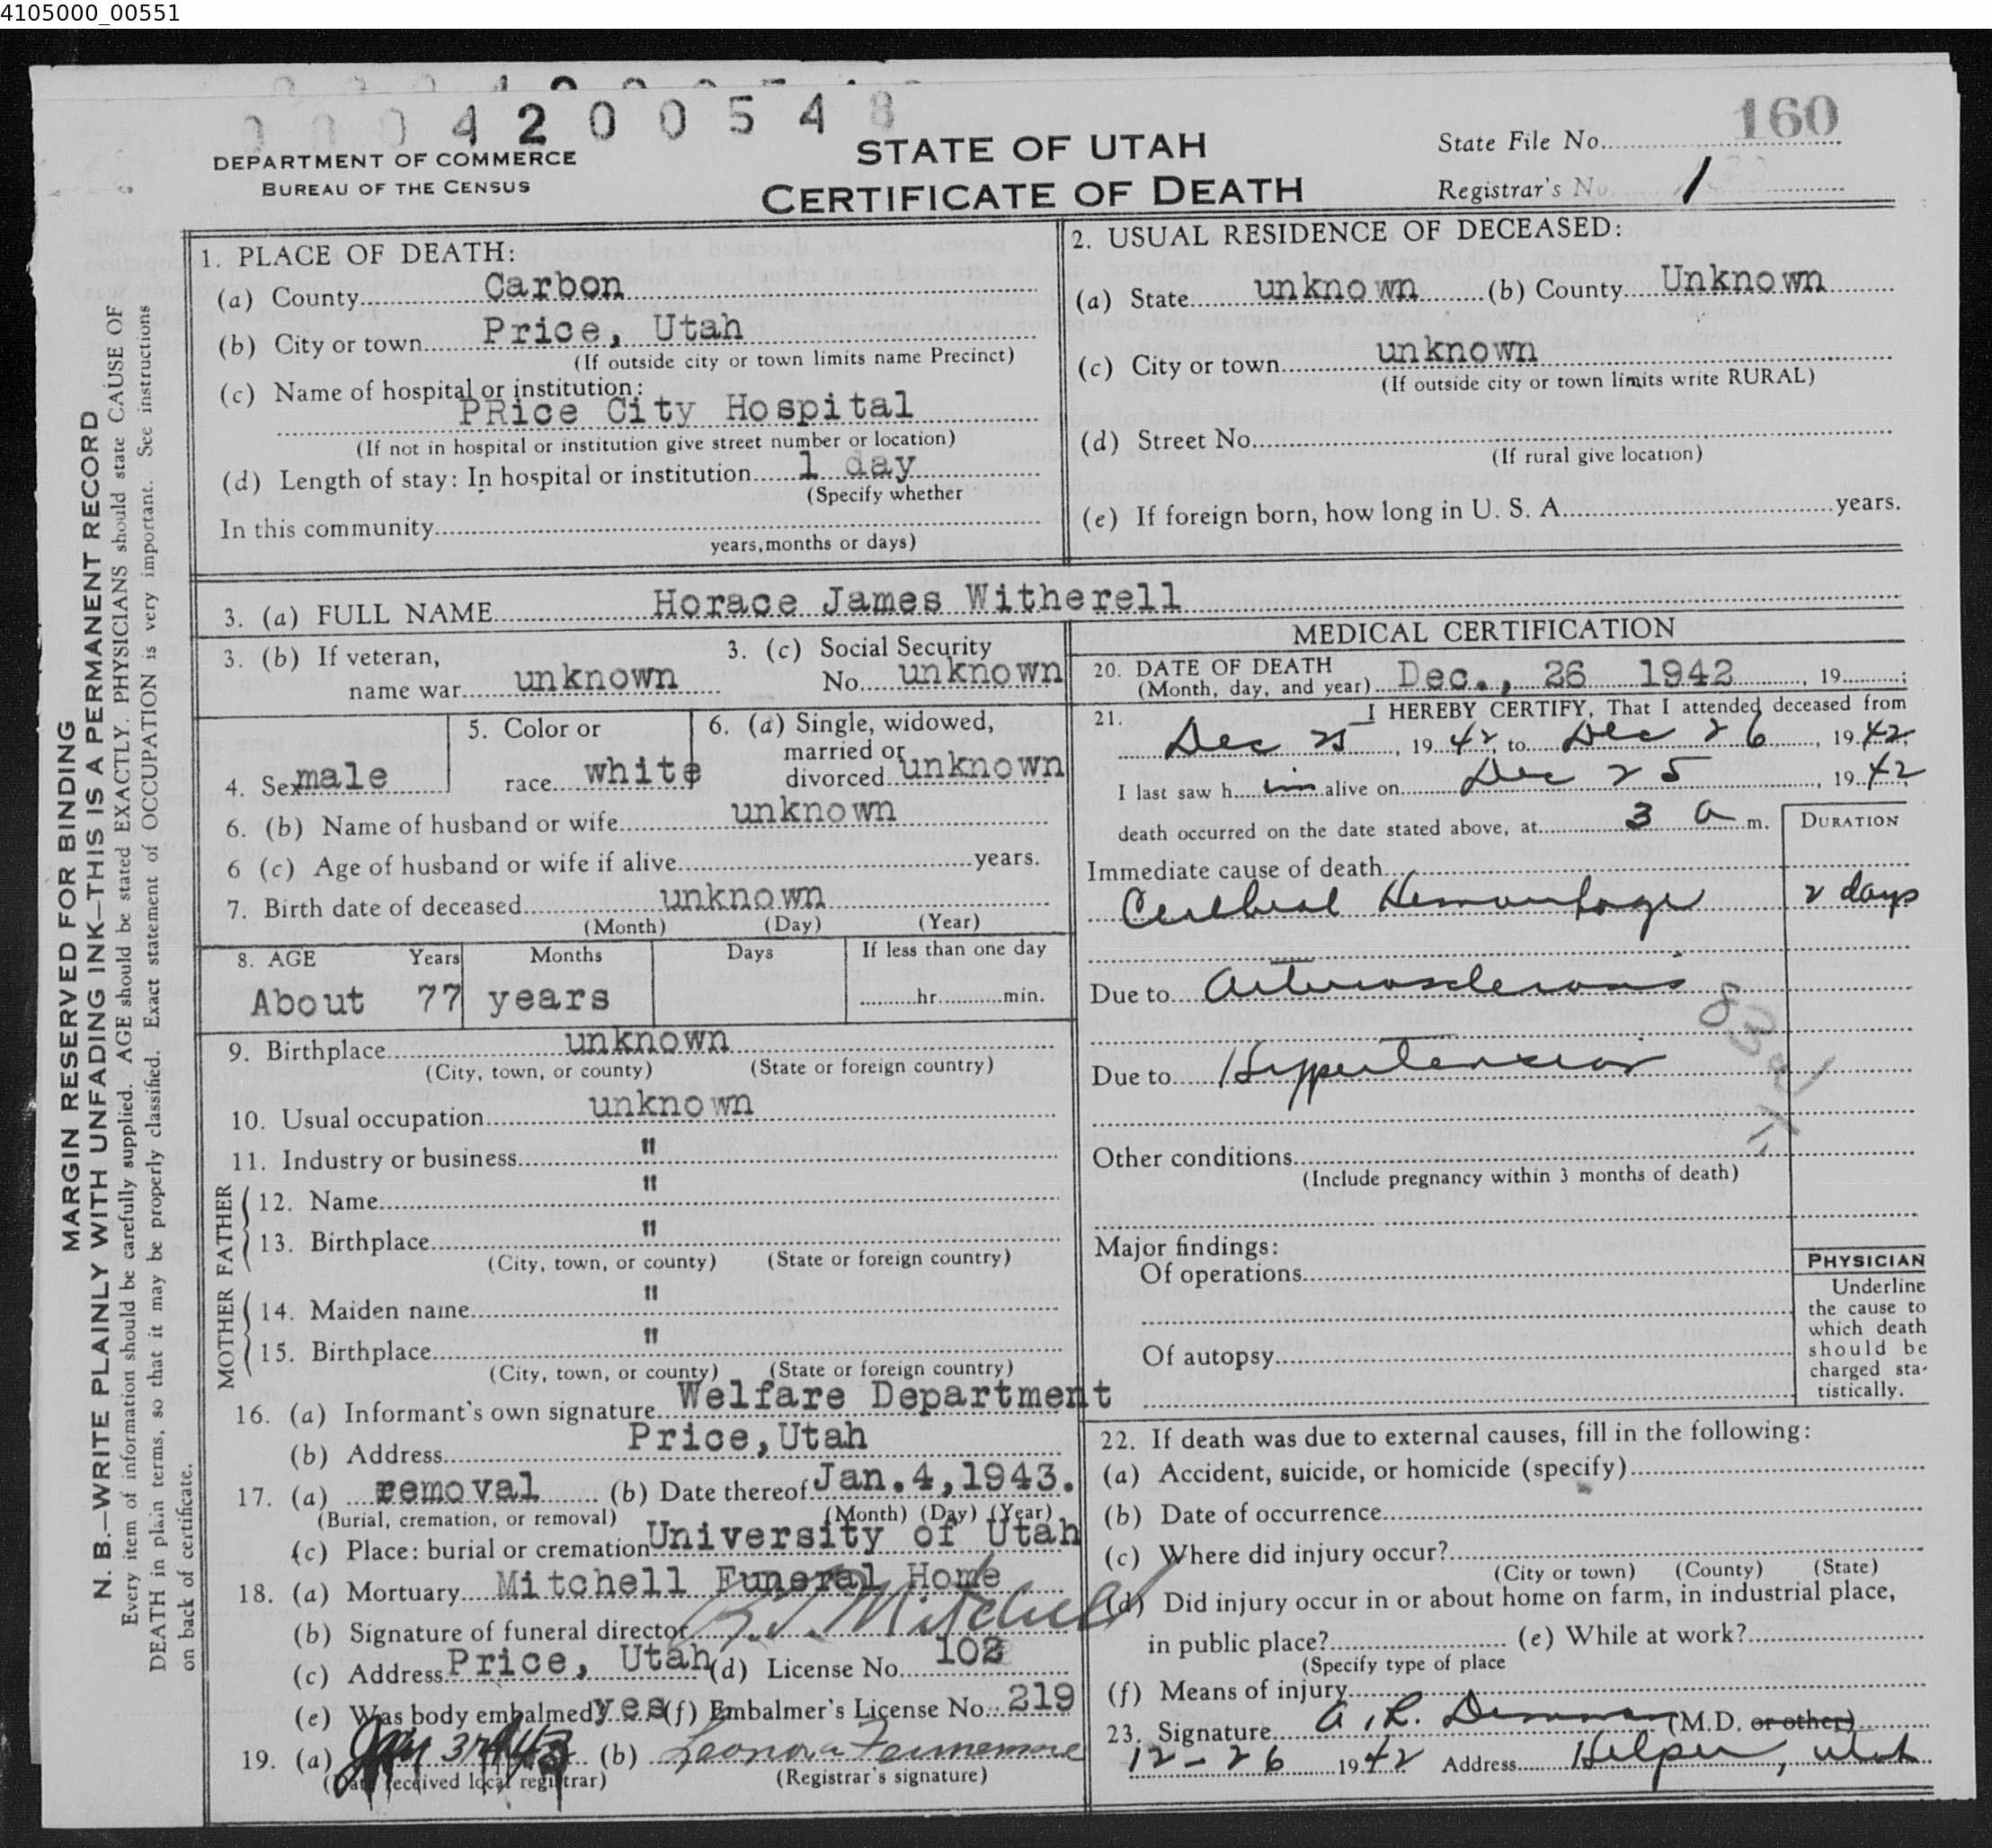 4105000_00551
0 0 0 4 2 0 0 5 4 8
160
DEPARTMENT OF COMMERCE
BUREAU OF THE CENSUS
STATE OF UTAH
CERTIFICATE OF DEATH
State File No.
Registrar's No. 1
1. PLACE OF DEATH:
(a) County Carbon
(b) City or town Price, Utah
(If outside city or town limits name Precinct)
(c) Name of hospital or institution:
PRice City Hospital
(If not in hospital or institution give street number or location)
(d) Length of stay: In hospital or institution 1 day
(Specify whether
In this community
years, months or days)
2. USUAL RESIDENCE OF DECEASED:
(a) State unknown (b) County Unknown
(c) City or town unknown
(If outside city or town limits write RURAL)
(d) Street No.
(If rural give location)
(e) If foreign born, how long in U. S. A. years.
3. (a) FULL NAME Horace James Witherell
3. (b) If veteran,
name war unknown
3. (c) Social Security
No. unknown
4. Sex male
5. Color or
race white
6. (a) Single, widowed,
married or
divorced unknown
6. (b) Name of husband or wife unknown
6 (c) Age of husband or wife if alive years.
7. Birth date of deceased unknown
(Month) (Day) (Year)
8. AGE Years Months Days If less than one day
About 77 years hr. min.
9. Birthplace unknown
(City, town, or county) (State or foreign country)
10. Usual occupation unknown
11. Industry or business "
FATHER
12. Name "
13. Birthplace "
(City, town, or county) (State or foreign country)
MOTHER
14. Maiden name "
15. Birthplace "
(City, town, or county) (State or foreign country)
16. (a) Informant's own signature Welfare Department
(b) Address Price, Utah
17. (a) removal (b) Date thereof Jan. 4, 1943.
(Burial, cremation, or removal) (Month) (Day) (Year)
(c) Place: burial or cremation University of Utah
18. (a) Mortuary Mitchell Funeral Home
(b) Signature of funeral director Mitchell
(c) Address Price, Utah (d) License No. 102
(e) Was body embalmed yes (f) Embalmer's License No. 219
19. (a) Jan 3rd 43 (b) Leonora Fennemore
(Date received local registrar) (Registrar's signature)
MEDICAL CERTIFICATION
20. DATE OF DEATH
(Month, day, and year) Dec., 26 1942, 19 ;
21. I HEREBY CERTIFY, That I attended deceased from
Dec 25, 1942, to Dec 26, 1942,
I last saw him alive on Dec 25, 1942
death occurred on the date stated above, at 3 a m.
DURATION
Immediate cause of death
Cerebral Hemorrhage 2 days
Due to Arteriosclerosis
Due to Hypertension
Other conditions
(Include pregnancy within 3 months of death)
Major findings:
Of operations
Of autopsy
PHYSICIAN
Underline
the cause to
which death
should be
charged sta-
tistically.
22. If death was due to external causes, fill in the following:
(a) Accident, suicide, or homicide (specify)
(b) Date of occurrence
(c) Where did injury occur?
(City or town) (County) (State)
(d) Did injury occur in or about home on farm, in industrial place,
in public place? (e) While at work?
(Specify type of place
(f) Means of injury
23. Signature A. R. Demman (M.D. or other)
12-26 1942 Address Helper, Utah
MARGIN RESERVED FOR BINDING
N. B.—WRITE PLAINLY WITH UNFADING INK—THIS IS A PERMANENT RECORD
Every item of information should be carefully supplied. AGE should be stated EXACTLY. PHYSICIANS should state CAUSE OF
DEATH in plain terms, so that it may be properly classified. Exact statement of OCCUPATION is very important. See instructions
on back of certificate.